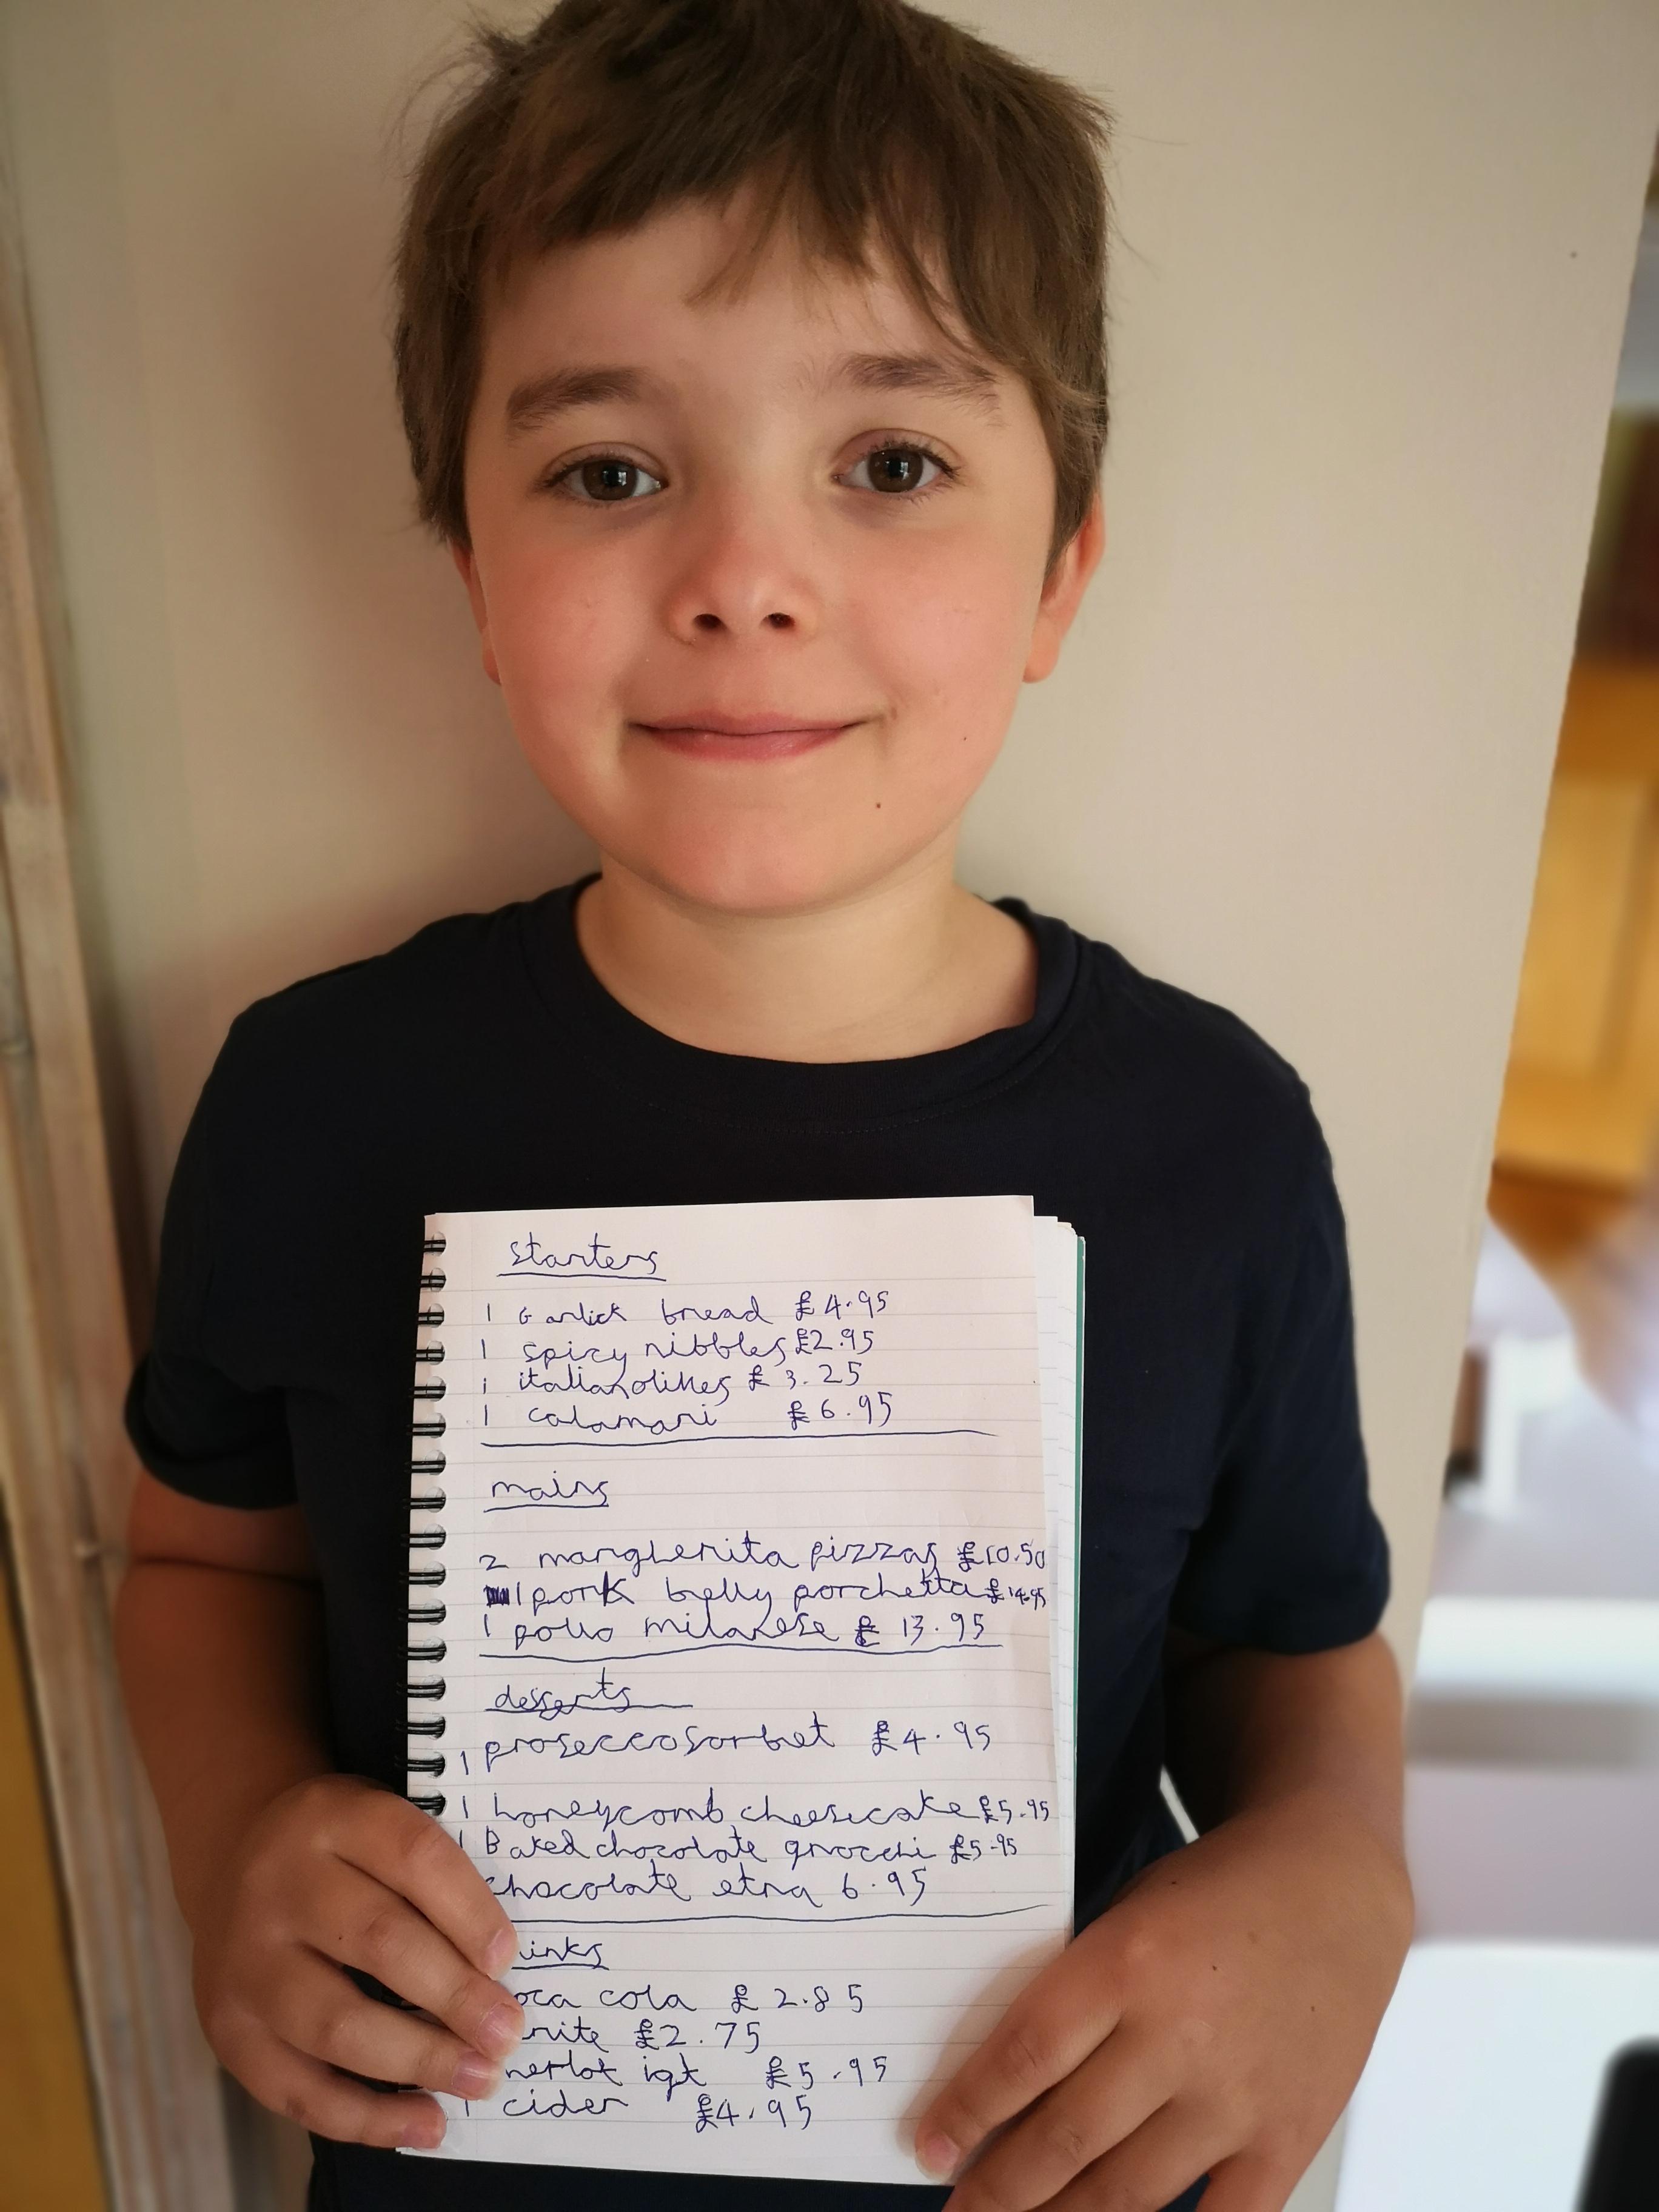 starters
1 Garlick bread £4.95
1 spicy nibbles £2.95
1 italian olives £3.25
1 calamari £6.95
mains
2 margherita pizzas £10.50
1 pork belly porchetta £14.95
1 pollo milanese £13.95
desserts
1 prosecco sorbet £4.95
1 honeycomb cheesecake £5.95
1 Baked chocolate gnocchi £5.95
chocolate etna 6.95
inks
oca cola £2.85
rite £2.75
merlot igt £5.95
1 cider £4.95